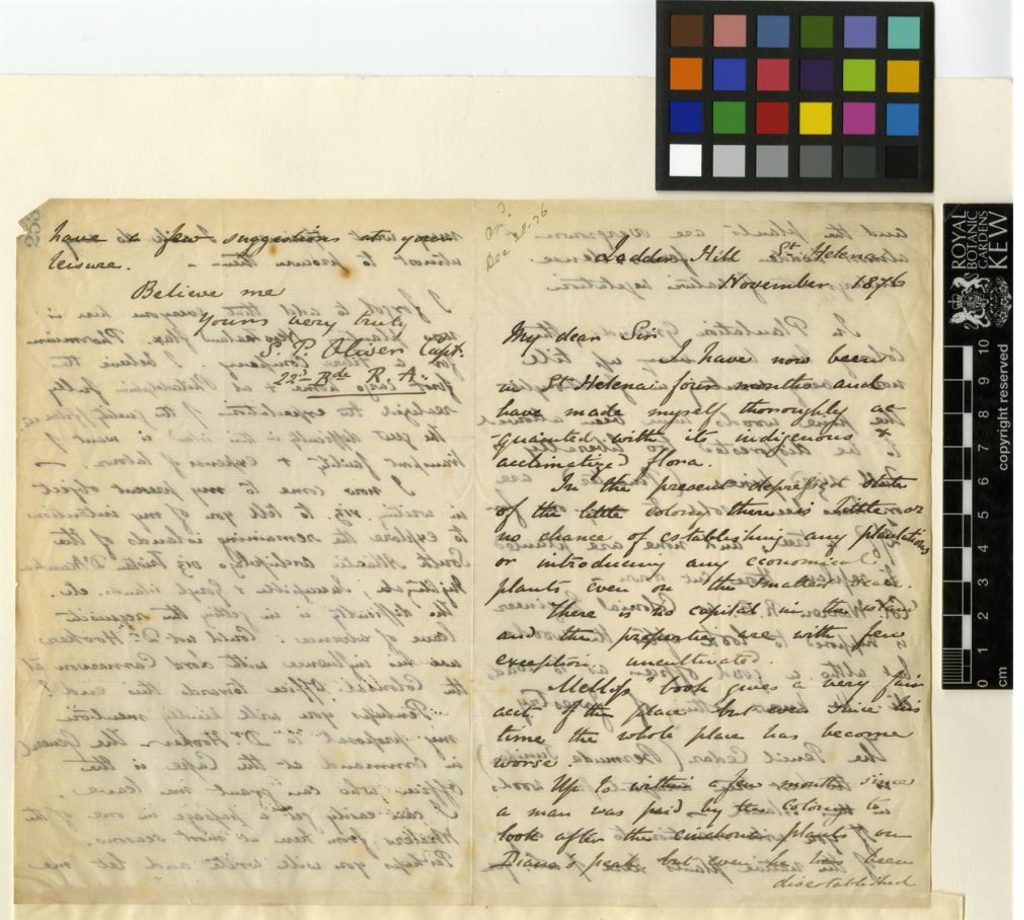 have a few suggestions at your
leisure.
Believe me
Yours very truly
S. P. Oliver Capt.
22nd Bde R. A.
253
Ladder Hill St Helena
November 1876
My dear Sir
I have now been
in St Helena four months and
have made myself thoroughly ac-
-quainted with its indigenous &
acclimatized flora.
In the present depressed state
of the little colony there is little or
no chance of establishing any plantations
or introducing any economical
plants even on the smallest scale.
There is no capital in the island
and the properties are with few
exceptions uncultivated.
Melliss' book gives a very fair
acct. of the place but even since his
time the whole place has become
worse.
Up to within a few months since
a man was paid by the Colony to
look after the cinchona plants on
Diana's peak but even he has been
disestablished
ROYAL
BOTANIC
GARDENS
KEW
copyright reserved
10
9
8
7
6
5
4
3
2
1
0
cm